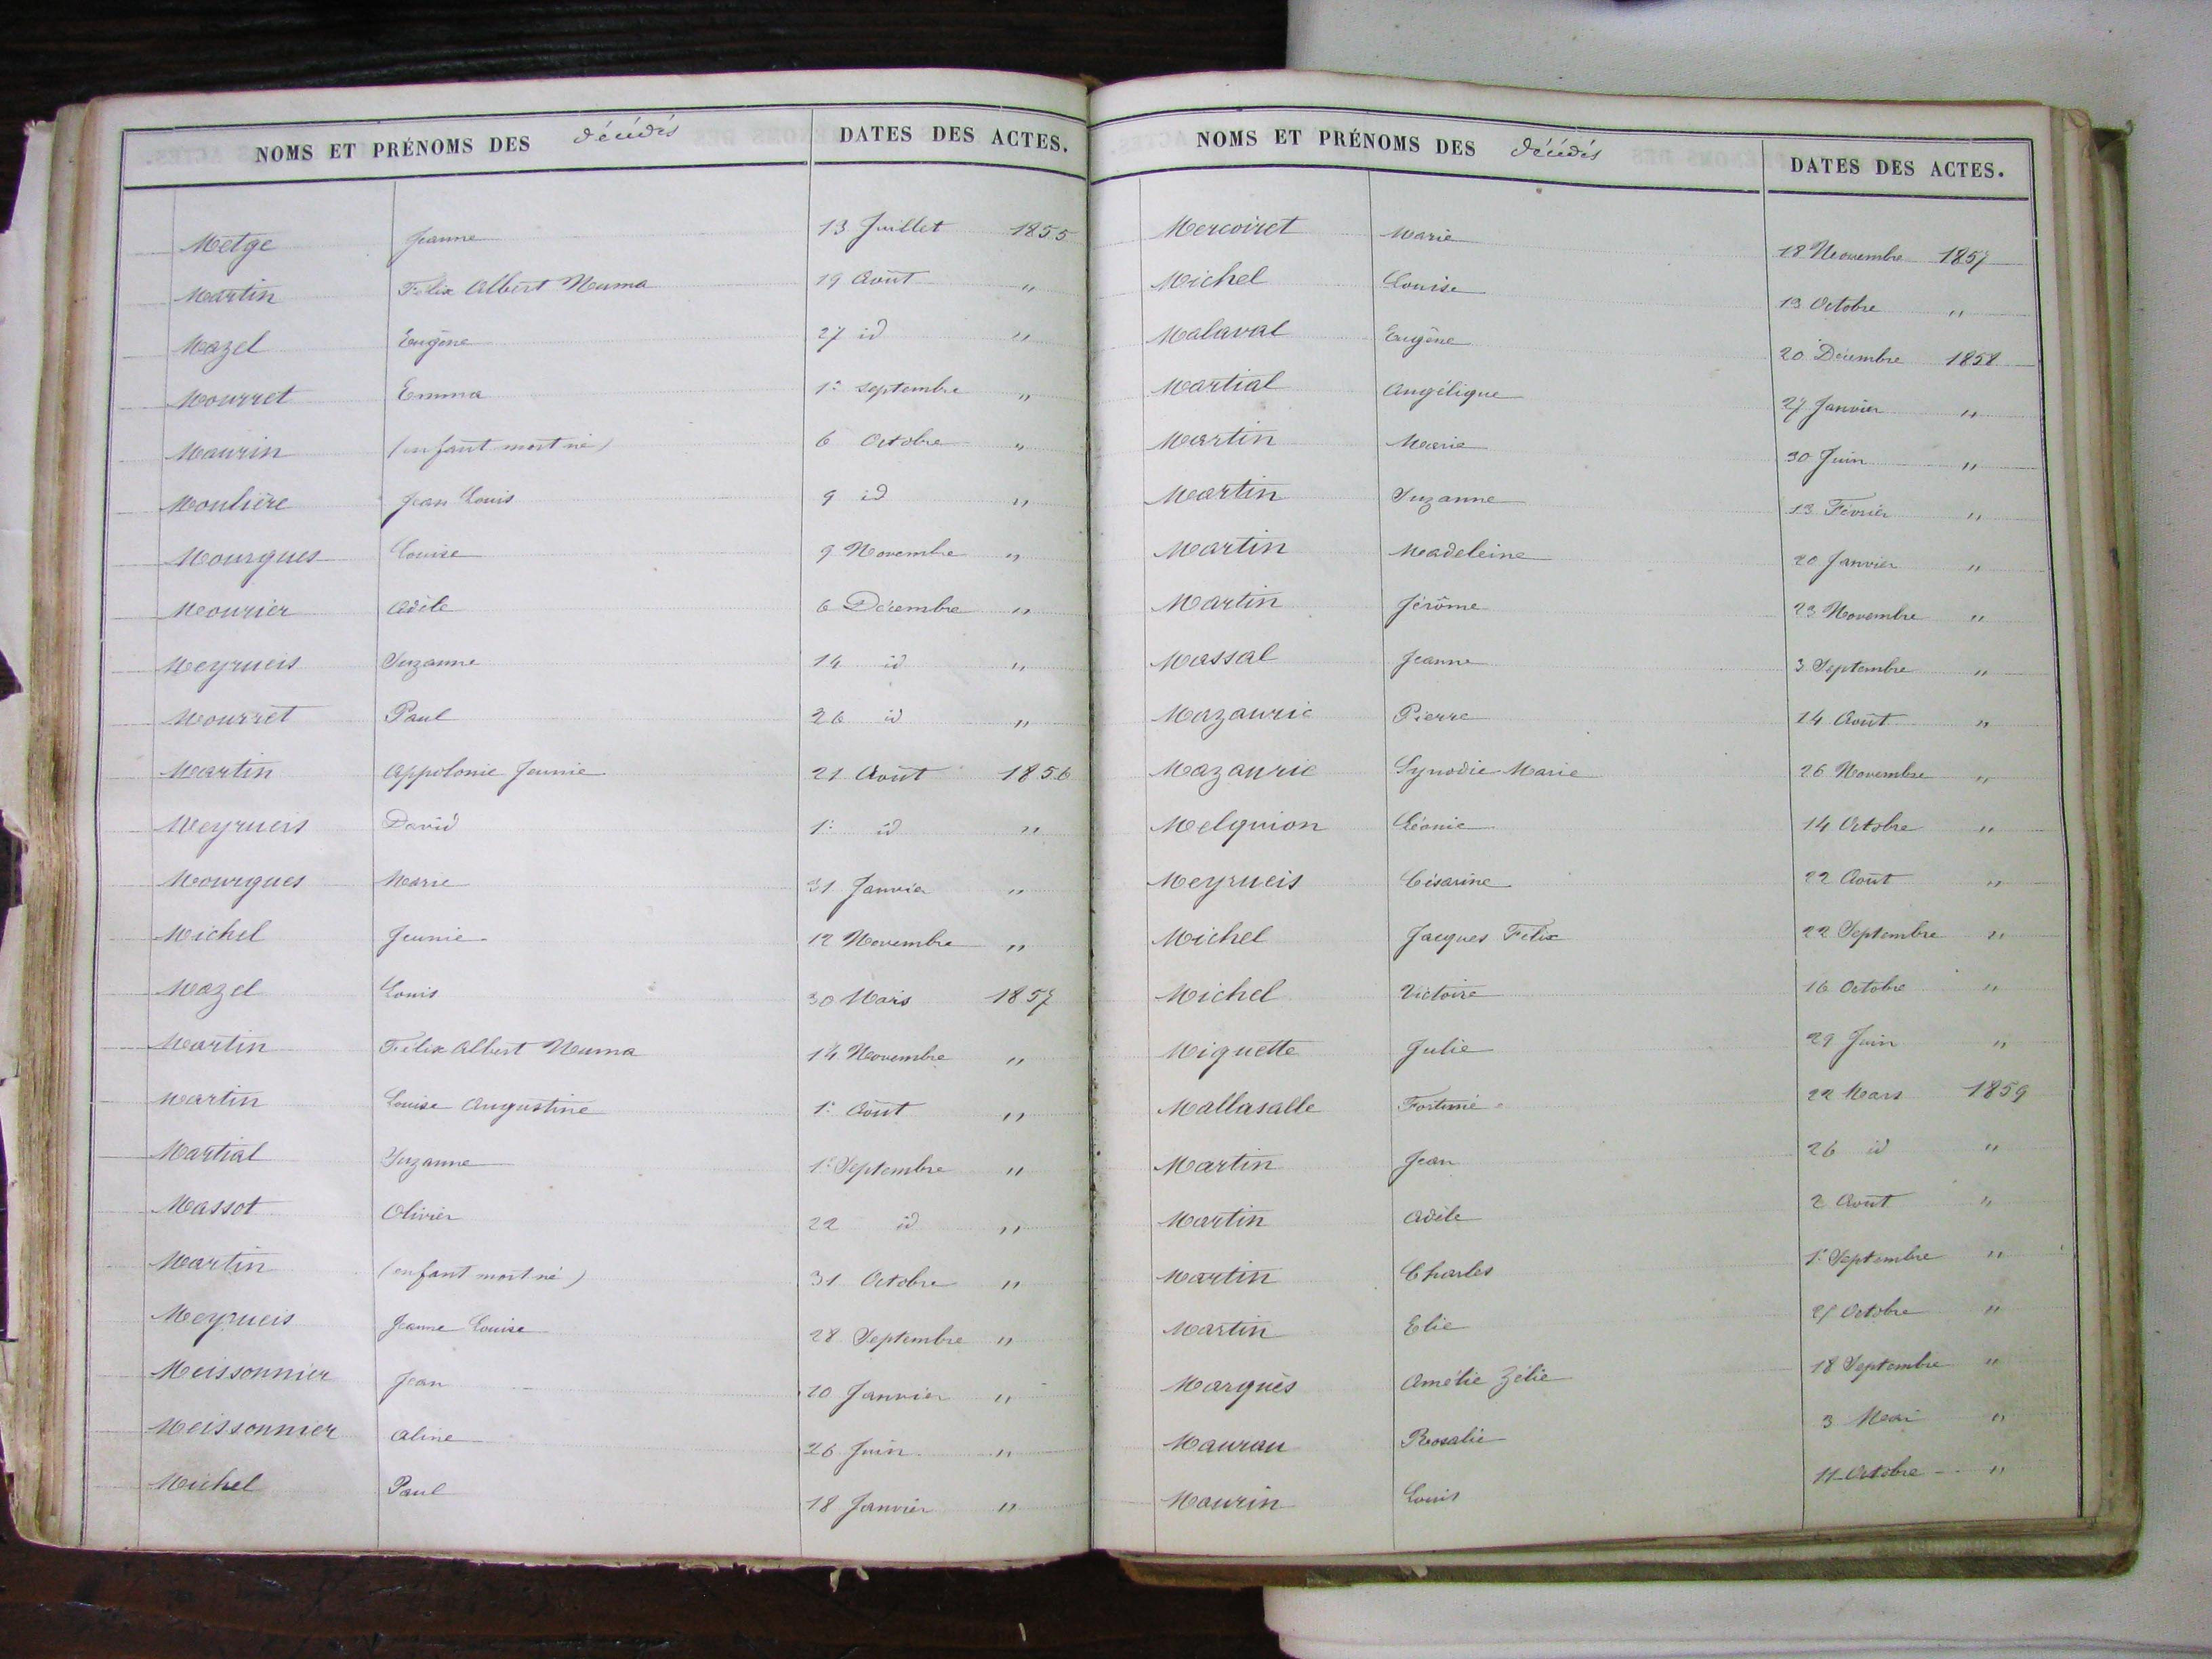 NOMS ET PRÉNOMS DES décédés DATES DES ACTES.
Metge Jeanne 13 Juillet 1855
Martin Félix Albert Numa 19 Août "
Mazel Eugène 27 id "
Mourret Emma 1er septembre "
Maurin (enfant mort né) 6 Octobre "
Moulière Jean Louis 9 id "
Mourgues Louise 9 Novembre "
Mourier Adèle 6 Décembre "
Meyrueis Suzanne 14 id "
Mourret Paul 26 id "
Martin Appolonie Jennie 21 Août 1856
Meyrueis David 1er id "
Mourgues Marie 31 Janvier "
Michel Jennie 12 Novembre "
Mazel Louis 30 Mars 1857
Martin Félix Albert Numa 14 Novembre "
Martin Louise Augustine 1er Août "
Martial Suzanne 1er Septembre "
Massot Olivier 22 id "
Martin (enfant mort né) 31 Octobre "
Meyrueis Jeanne Louise 28 Septembre "
Meissonnier Jean 20 Janvier "
Meissonnier Aline 26 Juin "
Michel Paul 18 Janvier "
NOMS ET PRÉNOMS DES décédés DATES DES ACTES.
Mercoiret Marie 18 Novembre 1857
Michel Louise 13 Octobre "
Malaval Eugène 20 Décembre 1858
Martial Angélique 27 Janvier "
Martin Marie 30 Juin "
Martin Suzanne 13 Février "
Martin Madeleine 20 Janvier "
Martin Jérôme 23 Novembre "
Massal Jeanne 3 Septembre "
Mazauric Pierre 14 Août "
Mazauric Synodie Marie 26 Novembre "
Melquion Léonie 14 Octobre "
Meyrueis Césarine 22 Août "
Michel Jacques Félix 22 Septembre "
Michel Victoire 16 Octobre "
Miquette Julie 29 Juin "
Mallasalle Fortuné 22 Mars 1859
Martin Jean 26 id "
Martin Adèle 2 Août "
Martin Charles 1er Septembre "
Martin Elie Octobre "
Marquès Amélie Zélie 18 Septembre "
Maurau Rosalie 3 Mai "
Maurin Louis 11 Octobre "